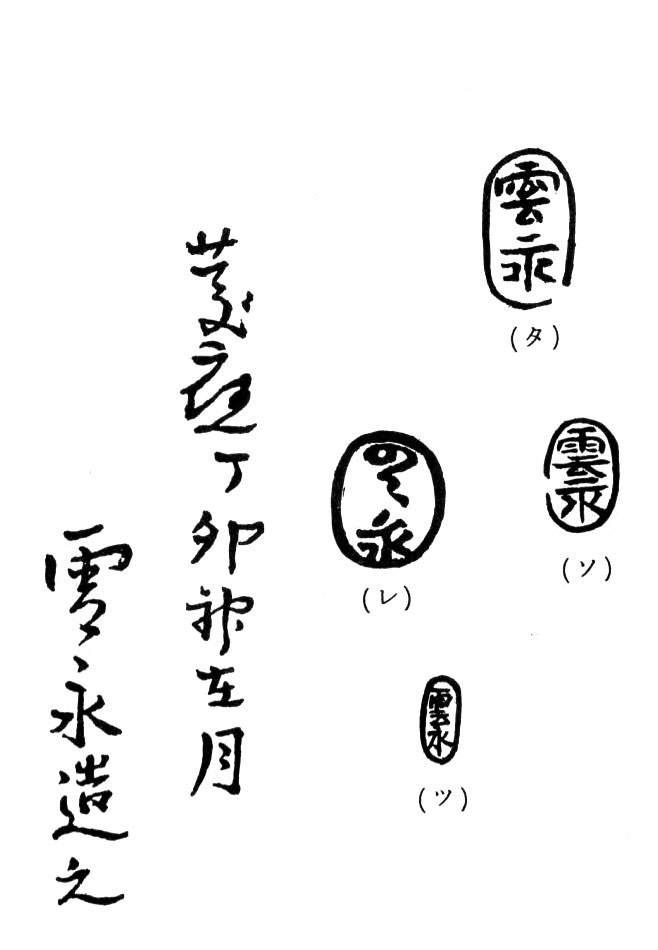 雲永
(タ)
雲永
(ソ)
雲永
(レ)
雲永
(ツ)
慶應丁卯神在月
雲永造之